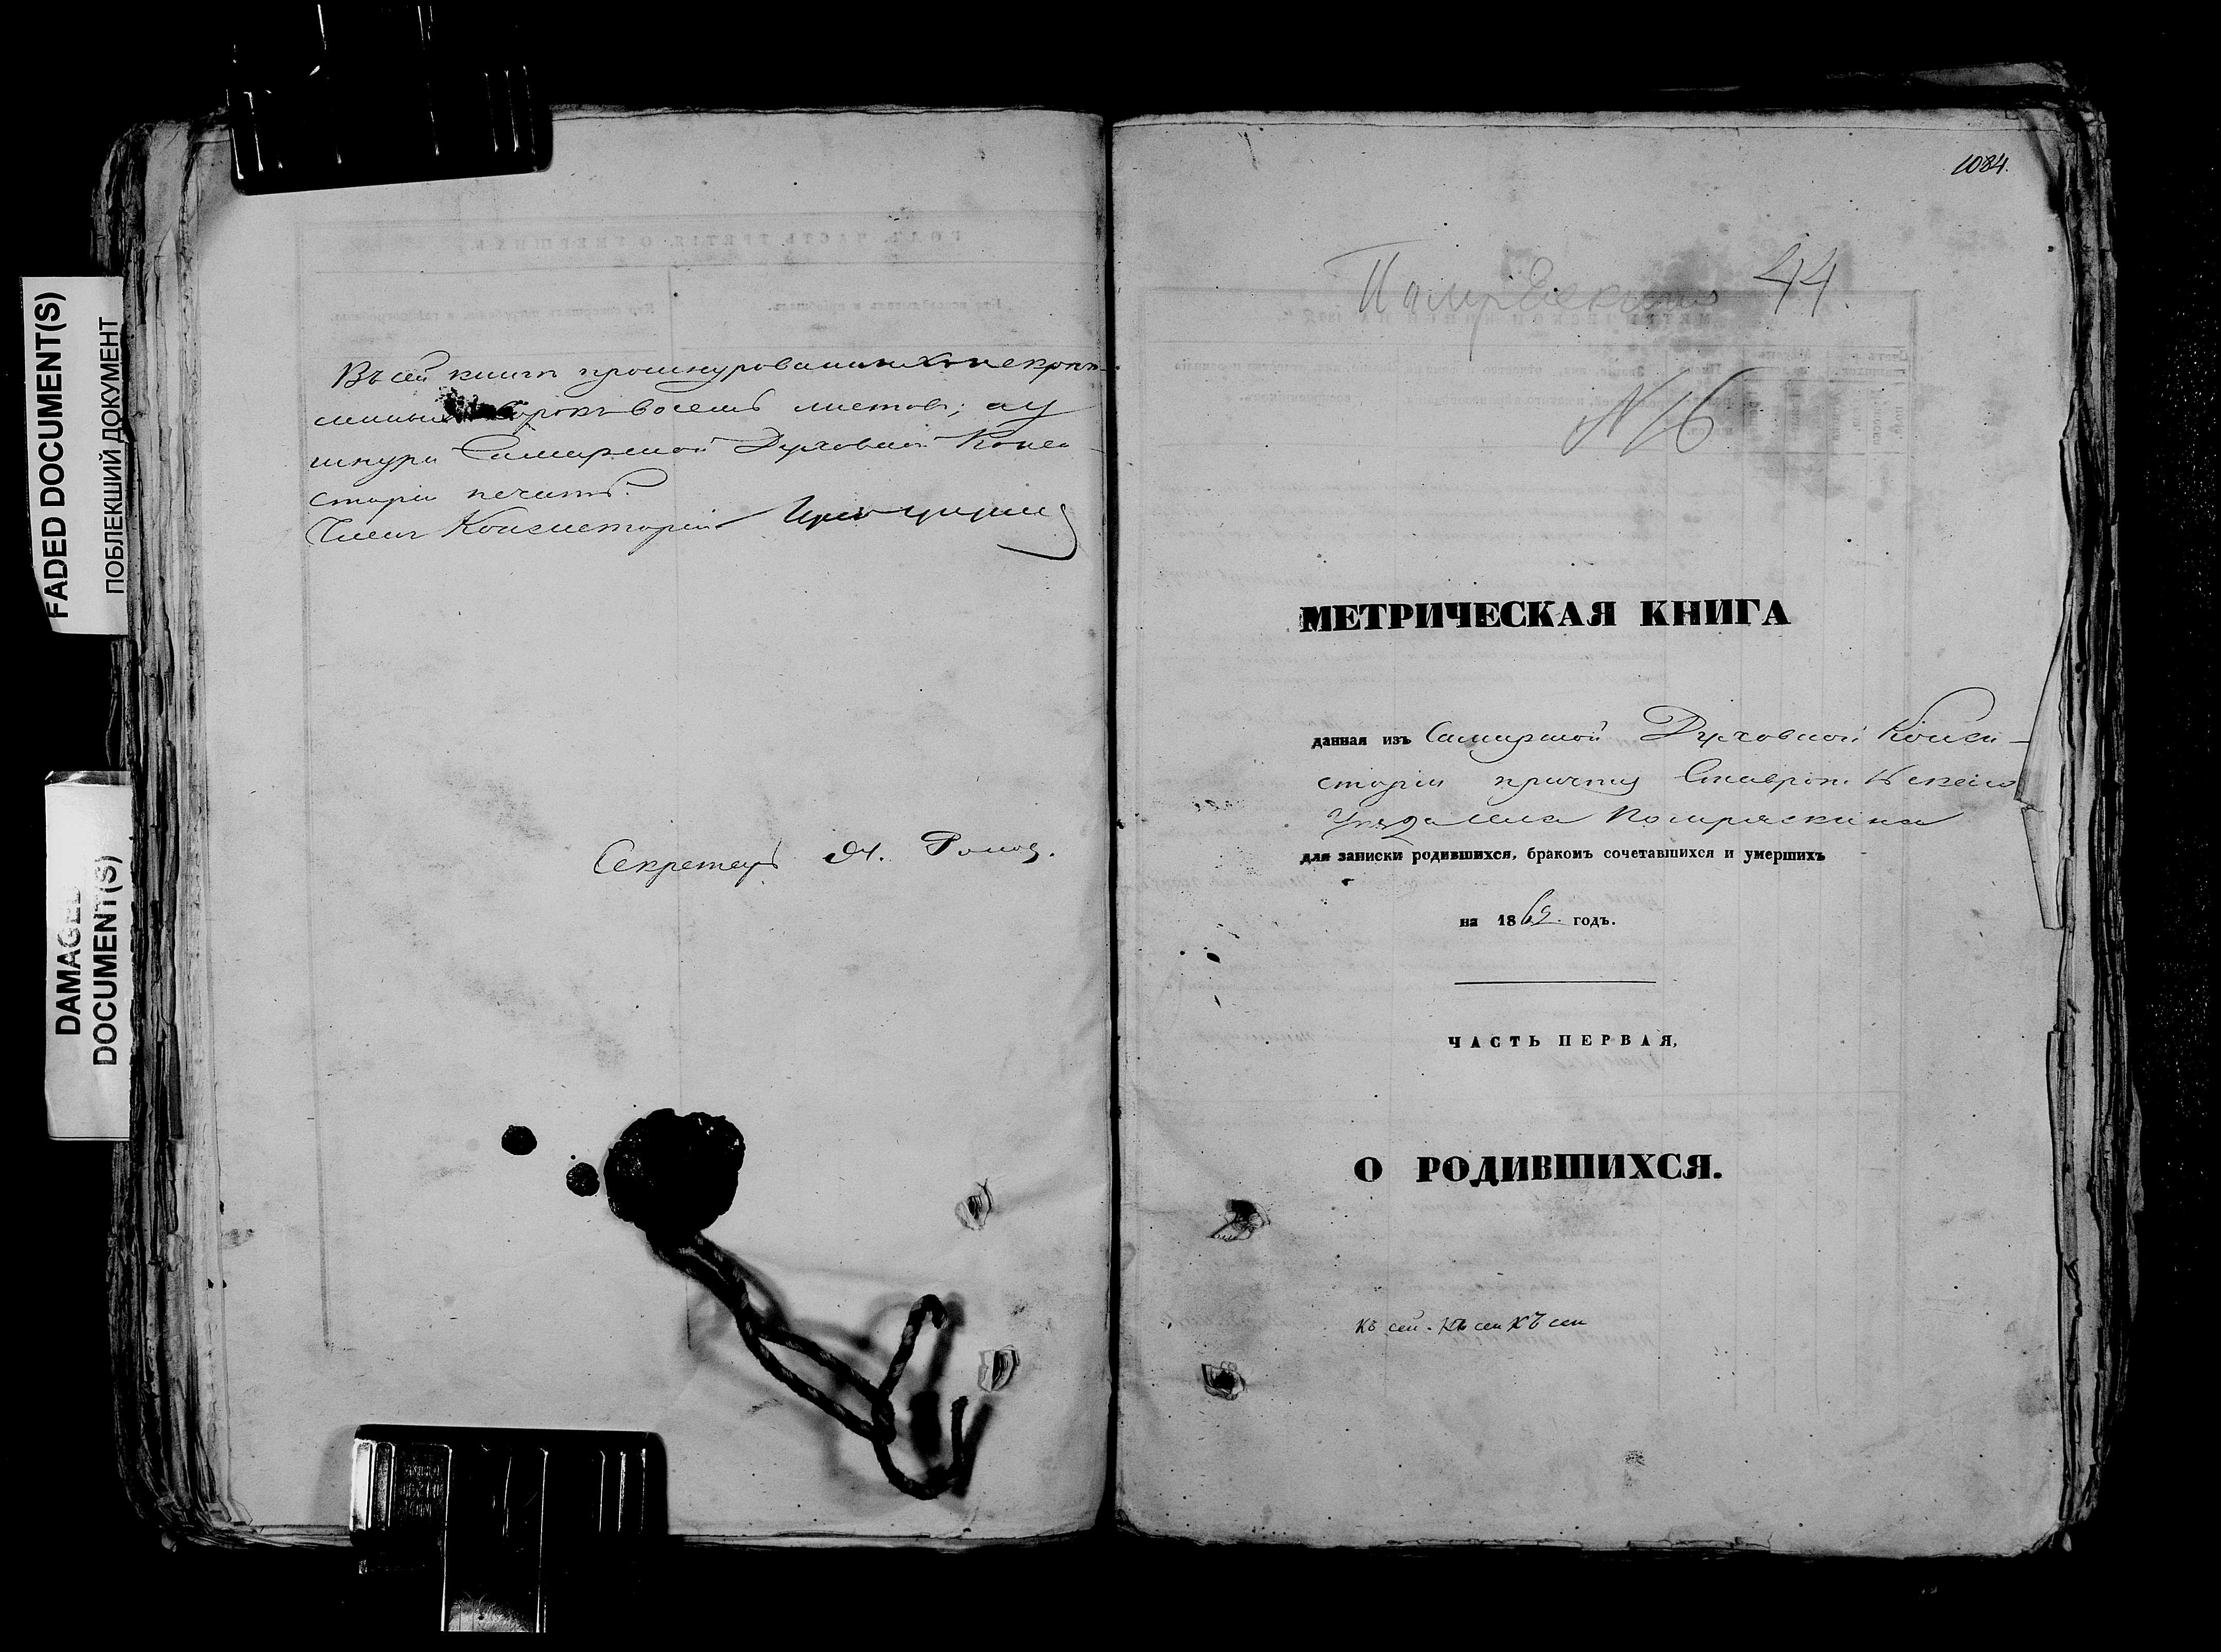 FADED DOCUMENT(S)
ПОБЛЕКШИЙ ДОКУМЕНТ
DAMAGED
DOCUMENT(S)
Въ сей книгѣ прошнурованныхъ и скрѣп-
ленныхъ сорокъ восемь листовъ; а у
шнура Самарской Духовной Конси-
сторіи печать.
Членъ Консисторіи
Секретарь
1084.
44.
N 16
МЕТРИЧЕСКАЯ КНИГА
данная изъ Самарской Духовной Конси-
сторіи причту Ставроп.
Уѣзда села Помряскина
для записки родившихся, бракомъ сочетавшихся и умершихъ
на 1869 годъ.
ЧАСТЬ ПЕРВАЯ,
О РОДИВШИХСЯ.
Къ сей. Къ сей Къ сей